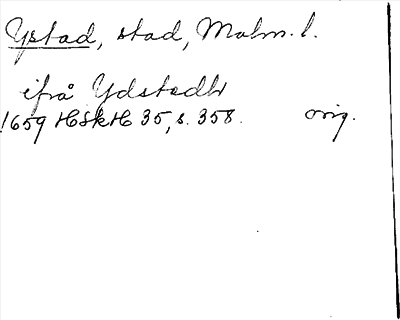 Ystad, stad, Malm. l.
ifrå Ydstedh
1659 HSkH 35, s. 358. orig.